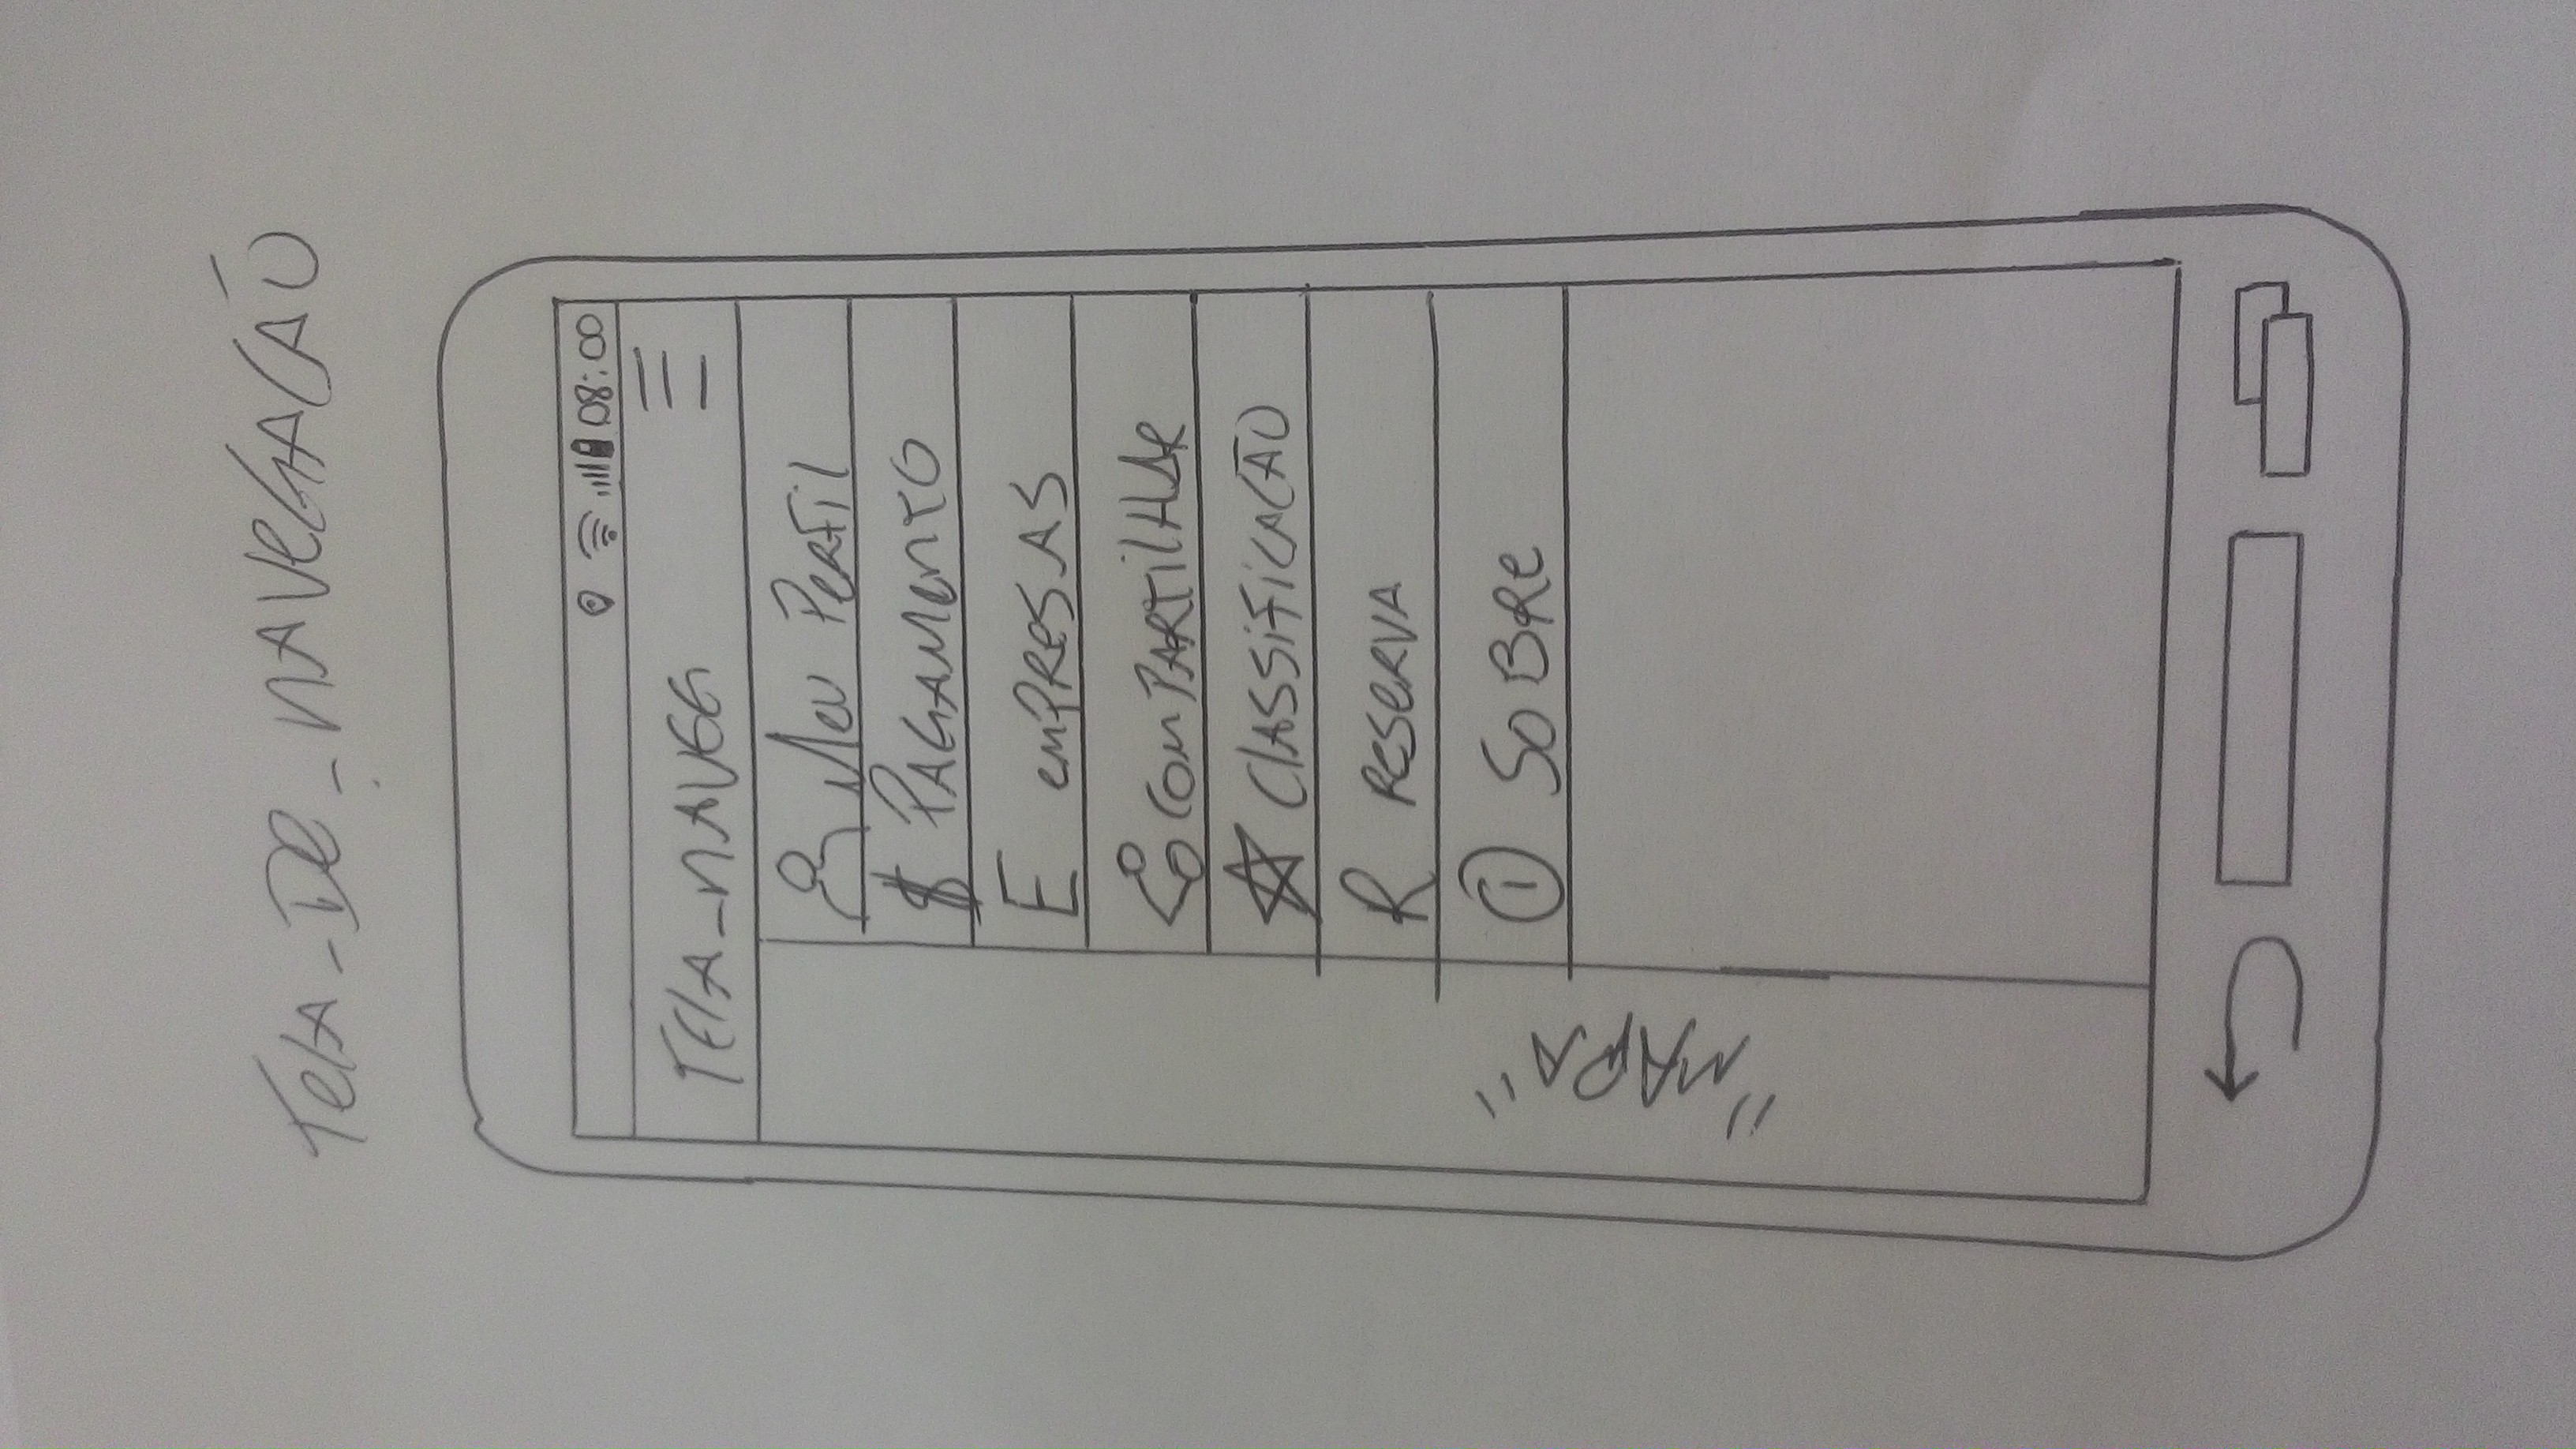 TelA_De_NAVEGAÇÃO
08:00
TElA_NAVEG
Meu Perfil
$ PAGAMENTO
E emPRESAS
COMPARTilHAR
ClASSiFiCAÇÃO
R ReSeRVA
i SOBRe
"MAPA"